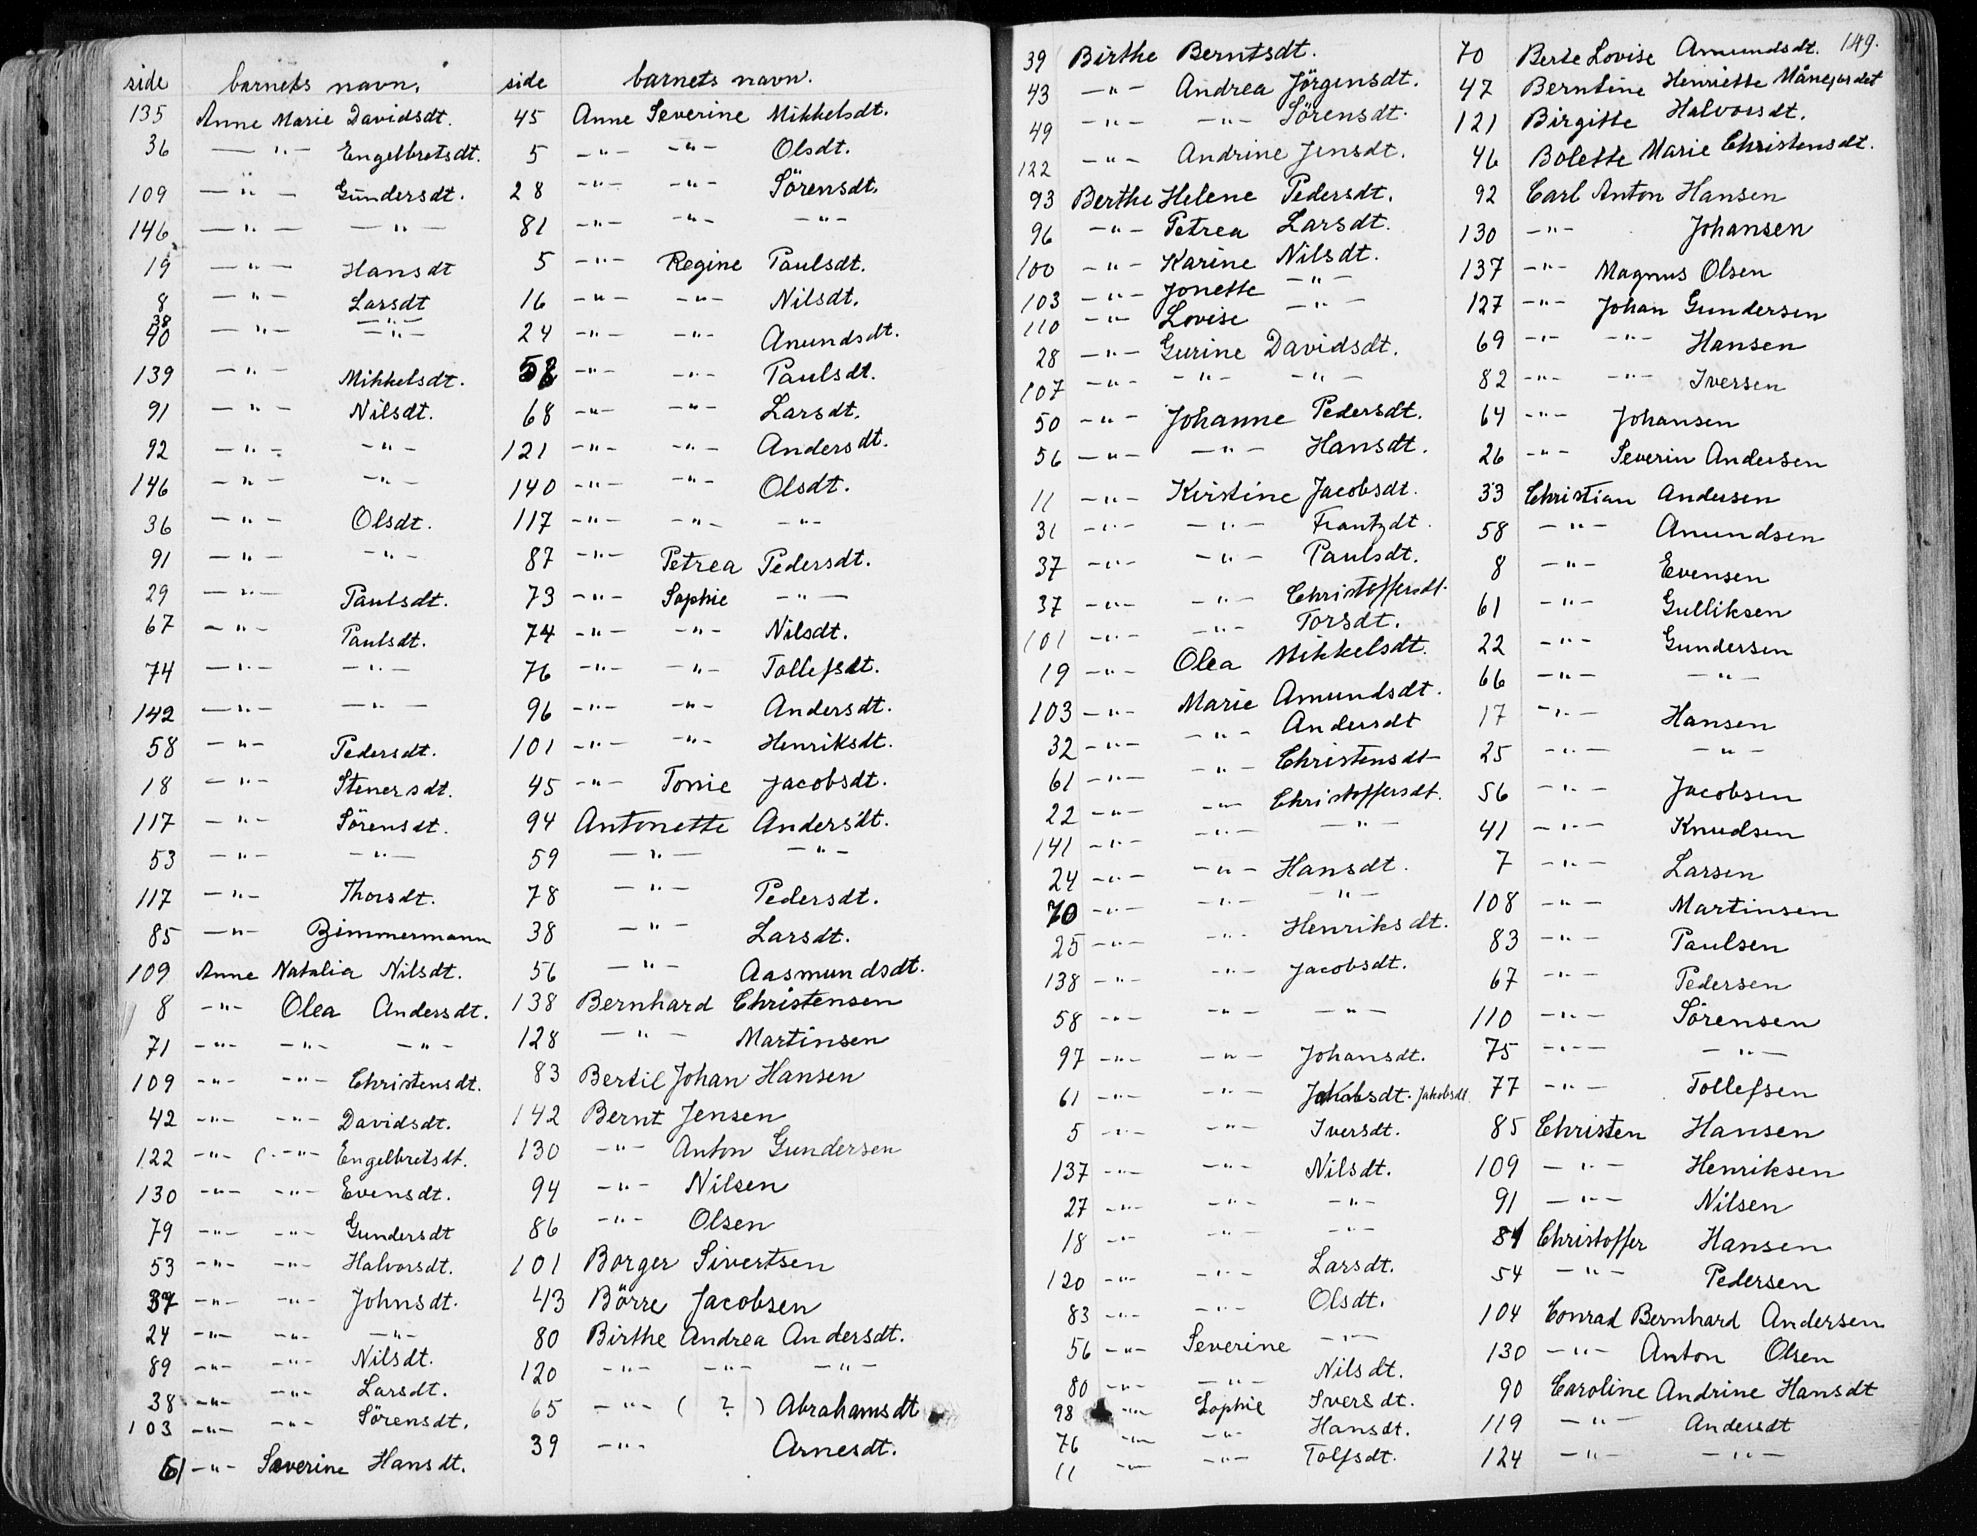 side barnets navn.
135 Anne Marie Davidsdt.
36 — " — Engelbretsdt.
109 — " — Gundersdt.
146 — " — — " —
19 — " — Hansdt
8 — " — Larsdt
38
40 — " — — " —
139 — " — Mikkelsdt.
91 — " — Nilsdt.
92 — " — — " —
146 — " — — " —
36 — " — Olsdt.
91 — " — — " —
29 — " — Paulsdt.
67 — " — Paulsdt.
74 — " — — " —
142 — " — — " —
58 — " — Pedersdt.
18 — " — Stenersdt.
117 — " — Sörensdt.
53 — " — — " —
117 — " — Thorsdt.
85 — " — Zimmermann
109 Anne Natalia Nilsdt.
8 — " — Olea Andersdt.
71 — " — — " — — " —
109 — " — — " — Christensdt.
42 — " — — " — Davidsdt.
122 — " — — " — Engelbretsdt.
130 — " — — " — Evensdt.
79 — " — — " — Gundersdt
53 — " — — " — Halvorsdt.
37 — " — — " — Johnsdt.
24 — " — — " — — " —
89 — " — — " — Nilsdt.
38 — " — — " — Larsdt.
103 — " — — " — Sörensdt.
61 — " — Severine Hansdt.
side barnets navn.
45 Anne Severine Mikkelsdt.
5 — " — — " — Olsdt.
28 — " — — " — Sörensdt.
81 — " — — " — — " —
5 — " — Regine Paulsdt.
16 — " — — " — Nilsdt.
24 — " — — " — Anundsdt.
58 — " — — " — Paulsdt.
68 — " — — " — Larsdt.
121 — " — — " — Andersdt.
140 — " — — " — Olsdt.
117 — " — — " — — " —
87 — " — Petrea Pedersdt.
73 — " — Sophie — " —
74 — " — — " — Nilsdt.
76 — " — — " — Tollefsdt.
96 — " — — " — Andersdt.
101 — " — — " — Henriksdt.
45 — " — Tonie Jacobsdt.
94 Antonette Andersdt.
59 — " — — " —
78 — " — Pedersdt.
38 — " — Larsdt.
56 — " — Aasmundsdt.
138 Bernhard Christensen
128 — " — Martinsen
83 Bertil Johan Hansen
142 Bernt Jensen
130 — " — Anton Gundersen
94 — " — Nilsen
86 — " — Olsen
101 Borger Sivertsen
43 Börre Jacobsen
80 Birthe Andrea Andersdt.
120 — " — — " — — " —
65 — " — ( ? ) Abrahamsdt
39 — " — Arnesdt.
39 Birthe Berntsdt.
43 — " — Andrea Jörgensdt.
49 — " — — " — Sörensdt.
122 — " — Andrine Jensdt.
93 Berthe Helene Pedersdt.
96 — " — Petrea Larsdt.
100 — " — Karine Nilsdt.
103 — " — Jonette — " —
110 — " — Lovise — " —
28 — " — Gurine Davidsdt.
107 — " — — " — — " —
50 — " — Johanne Pedersdt.
56 — " — — " — Hansdt.
11 — " — Kirstine Jacobsdt.
31 — " — — " — Frantzdt.
37 — " — — " — Paulsdt.
37 — " — — " — Christoffersdt.
101 — " — — " — Torsdt.
19 — " — Olea Mikkelsdt.
103 — " — Marie Amundsdt.
32 — " — — " — Andersdt
61 — " — — " — Christensdt
22 — " — — " — Christoffersdt.
141 — " — — " — — " —
24 — " — — " — Hansdt.
70 — " — — " — — " —
25 — " — — " — Henriksdt.
138 — " — — " — Jacobsdt.
58 — " — — " — — " —
97 — " — — " — Johansdt.
61 — " — — " — Jakobsdt. Jakobsdt
5 — " — — " — Iversdt.
137 — " — — " — Nilsdt.
27 — " — — " — — " —
18 — " — — " — — " —
120 — " — — " — Larsdt.
83 — " — — " — Olsdt.
56 — " — Severine — " —
80 — " — — " — Nilsdt.
98 — " — Sophie Iversdt.
76 — " — — " — Hansdt.
11 — " — — " — Tolfsdt.
149.
70 Berte Lovise Amundsdt.
47 Berntine Henriette
121 Birgitte Halvorsdt.
46 Bolette Marie Christensdt.
92 Carl Anton Hansen
130 — " — Johansen
137 — " — Magnus Olsen
127 — " — Johan Gundersen
69 — " — — " — Hansen
82 — " — — " — Iversen
64 — " — Johansen
26 — " — Severin Andersen
33 Christian Andersen
58 — " — Amundsen
8 — " — Evensen
61 — " — Gulliksen
22 — " — Gundersen
66 — " — — " —
17 — " — Hansen
25 — " — — " —
56 — " — Jacobsen
41 — " — Knudsen
7 — " — Larsen
108 — " — Martinsen
83 — " — Paulsen
67 — " — Pedersen
110 — " — Sörensen
75 — " — — " —
77 — " — Tollefsen
85 Christen Hansen
109 — " — Henriksen
91 — " — Nilsen
84 Christoffer Hansen
54 — " — Pedersen
104 Conrad Bernhard Andersen
130 — " — Anton Olsen
90 Caroline Andrine Hansdt
119 — " — Andersdt
124 — " — — " —